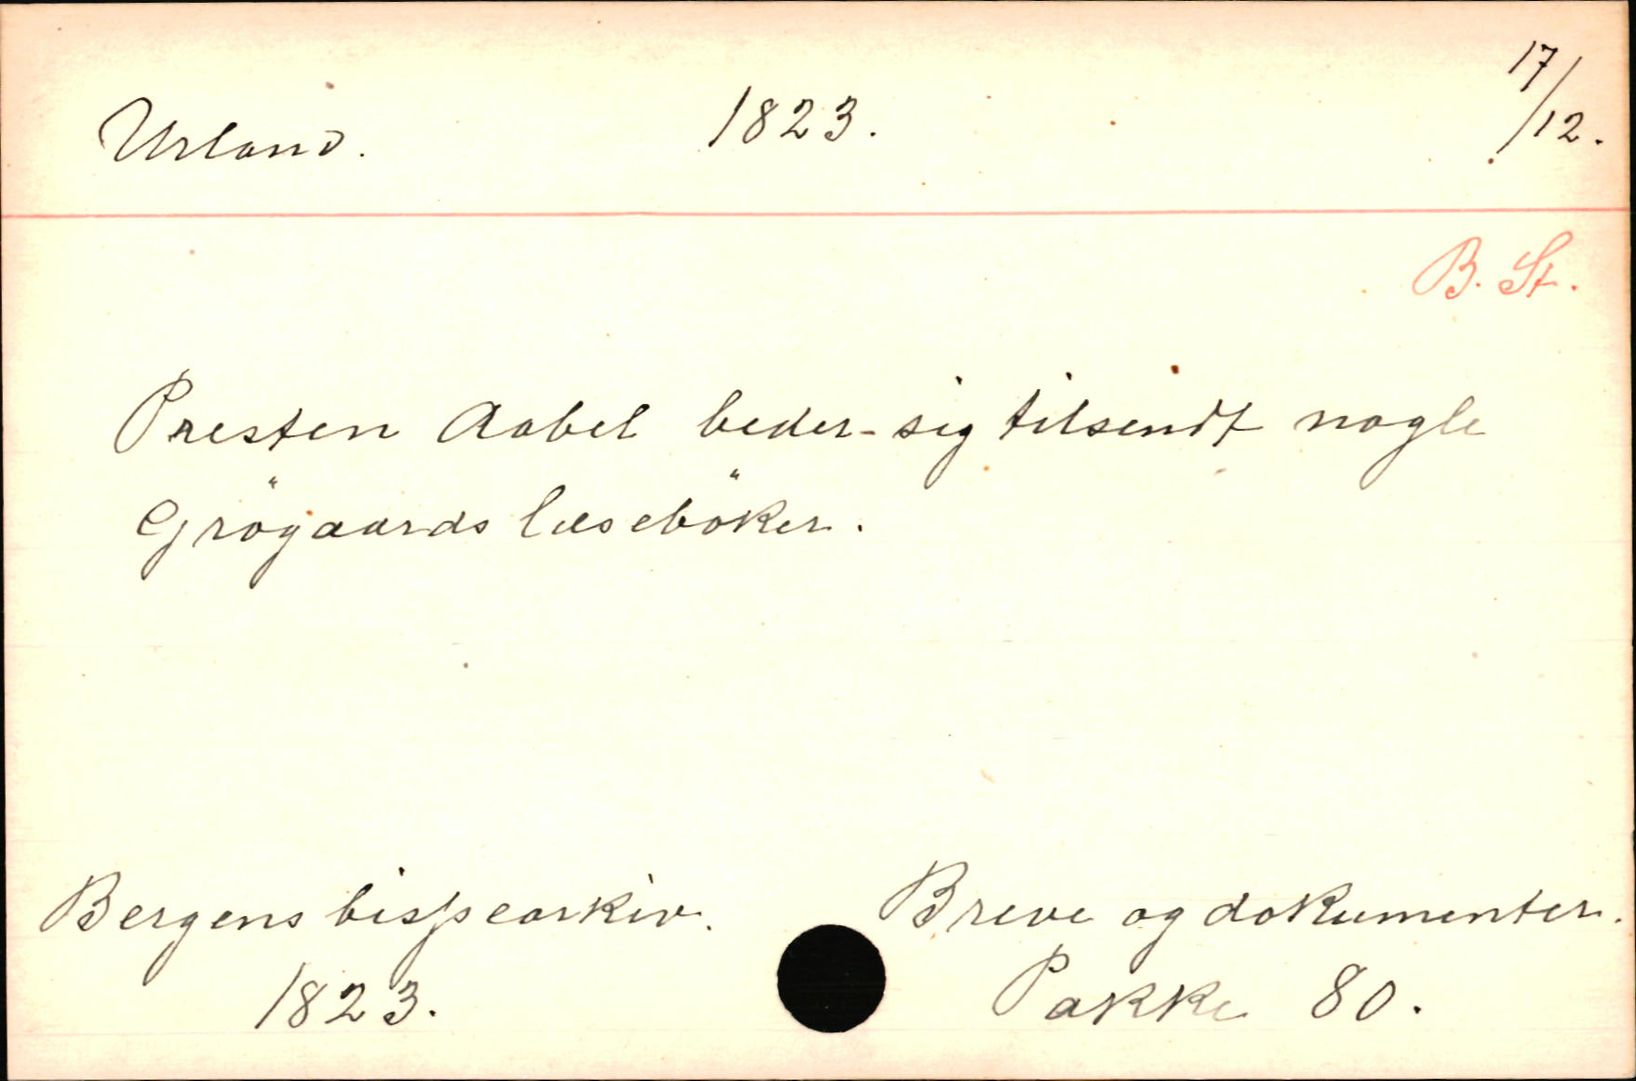 Urland. 1823. 17/12.
B. St.
Presten Aabel beder sig tilsendt nogle
Grögaards læseböker.
Bergens bispearkiv. Breve og dokumenter.
1823. Pakke 80.